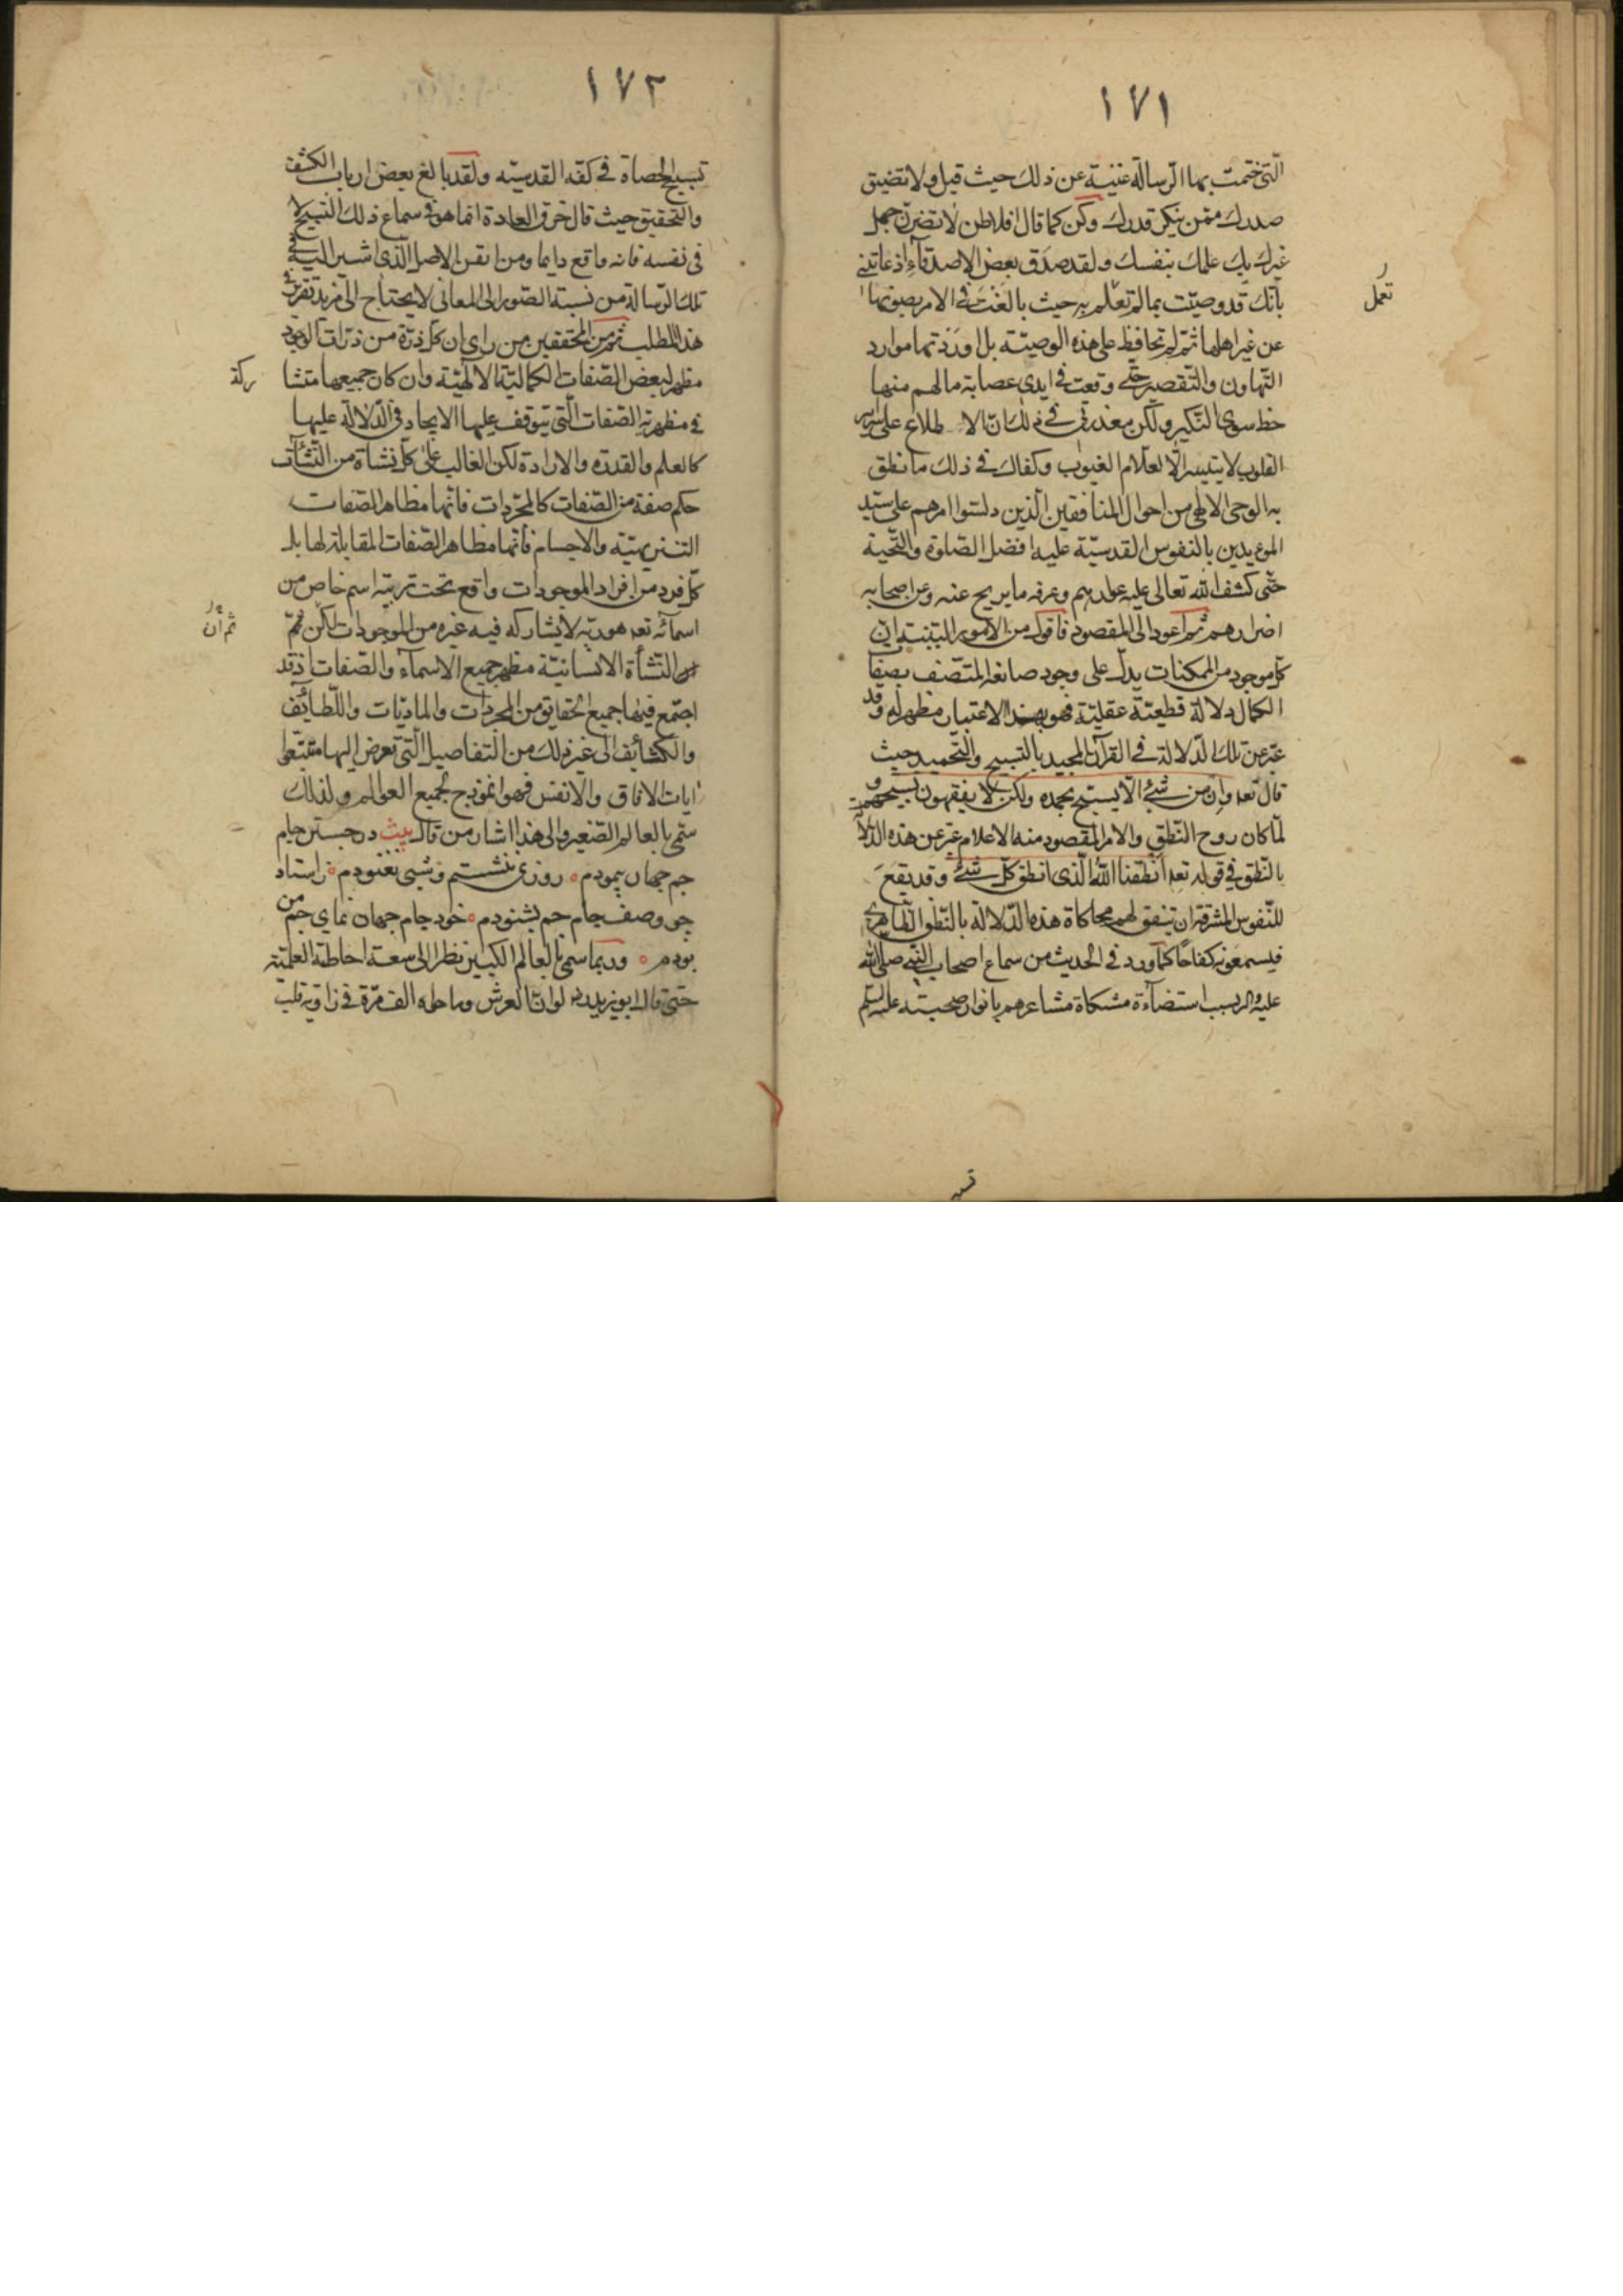 ١٧١
الّتى ختمت بها الرّسالة غنية عن ذلك حيث قيل ولا تضيق
صدرك ممّن ينكر قدرك وكن كما قال افلاطن لا تضرّن جهل
غيرك بك علمك بنفسك ولقد صدق بعض الاصدقاء اذ عاتبنى
بانّك قد وصيّت بما لم تعلم به حيث بالغت فى الامر بصونها
تعمل
عن غير اهلها ثمّ لم تحافظ على هذه الوصيّة بل اوردتها موارد
التّهاون والتّقصير حتّى وقعت فى ايدى عصابة ما لهم منها
حظ سوى النّكير ولكن معذرتى فى ذلك انّ الاطلاع على سرائر
القلوب لا يتيسر الّا لعلّام الغيوب وكفاك فى ذلك ما نطق
به الوحى الالهى من احوال المنافقين الّذين دلسّوا امرهم على سيّد
المؤيدين بالنفوس القدسيّة عليه افضل الصّلوة والتّحية
حتّى كشف الله تعالى عليه عوارهم وعرفه ما يريح عنه وعن اصحابه
اضرارهم ثم اعود الى المقصود فاقول من الامور البيّنة انّ
كلّ موجود من الممكنات يدلّ على وجود صانعه المتّصف بصفات
الكمال دلالة قطعيّة عقليّة فهو بهذا الاعتبار مظهر له وقد
عبّر عن تلك الدّلالة فى القرآن المجيد بالتسبيح والتّحميد حيث
قال تعه وان من شئ الّا يسبّح بحمده ولكن لا يفقهون تسبيحهم و
لمّا كان روح النّطق والامر المقصود منه الاعلام عبّر عن هذه الدّلالة
بالنّطق فى قوله تعه انطقنا الله الّذى انطق كلّ شئ وقد يقع
للنّفوس المشرقة ان يتّفق لهم محاكاة هذه الدّلالة بالنّطق الظّاهرى
فيسمعونه كفاحًا كما ورد فى الحديث من سماع اصحاب النّبى صلى الله
عليه واله بسبب استضآءة مشكاة مشاعرهم بانوار صحبته عليه السلم
١٧٢
تسبيح الحصاة فى كفّه القدسيّه ولقد بالغ بعض ارباب الكشف
والتّحقيق حيث قال خرق العادة انما هو فى سماع ذلك التسبيح لا
فى نفسه فانه واقع دايما ومن اتقن الاصل الّذى اشير اليه فى
تلك الرّسالة من نسبة الصّور الى المعانى لا يحتاج الى مزيد تقرير فى
هذا المطلب ثم من المحقّقين من راى ان كلّ ذرّة من ذرّات الوجود
مظهر لبعض الصّفات الكماليّة الالهيّة وان كان جميعها متشا
ركة
فى مظهريّة الصّفات الّتى يتوقّف عليها الايجاد فى الدّلالة عليها
كالعلم والقدرة والارادة لكن الغالب على كلّ نشأة من النّشآت
حكم صفة من الصّفات كالمجرّدات فانّها مظاهر الصّفات
التنزيهيّة والاجسام فانّها مظاهر الصّفات المقابلة لها بل
كلّ فرد من افراد الموجودات واقع تحت تربية اسم خاص من
اسمآئه تعه هو ربّه لا يشاركه فيه غيره من الموجودات لكن ثمّ
ثم ان
النّشأة الانسانيّة مظهر جميع الاسماء والصّفات اذ قد
اجتمع فيها جميع الحقايق من المجرّدات والمادّيّات واللّطايف
والكثايف الى غير ذلك من التّفاصيل الّتى تعرض اليها متتبّعوا
ايات الافاق والانفس فهو انموذج لجميع العوالم ولذلك
سمّى بالعالم الصّغير والى هذا اشار من قال بيت در جستن جام
جم جهان پيمودم ٥ روزى ننشستم و شبى نغنودم ٥ ز استاد
چو وصف جام جم بشنودم ٥ خود جام جهان نماى جم من
بودم ٥ وربّما سمى بالعالم الكبير نظرا الى سعة احاطته العلميّة
حتّى قال ابو يزيد ره لو انّ العرش وما حوله الف مرّة فى زاوية قلب